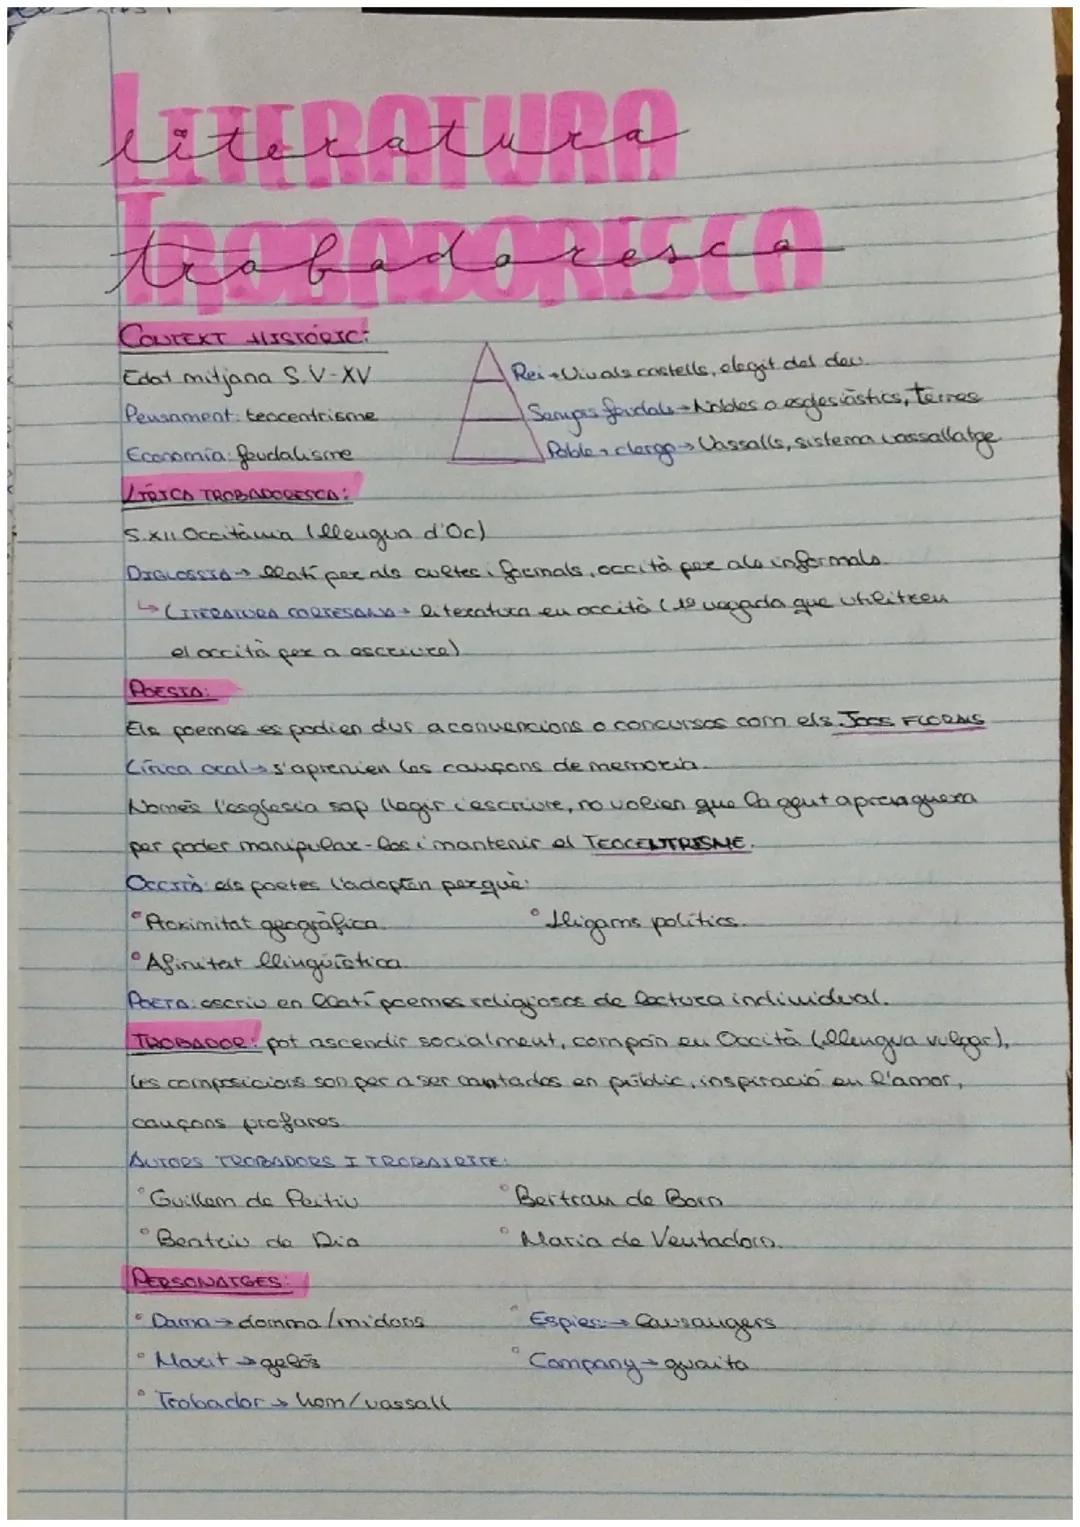 LITERATURA
literatura
TROBADORESCA
trobadoresca
CONTEXT HISTÒRIC:
Edat mitjana S.V-XV
Pensament: teocentrisme
Economía: feudalisme
Rei → Viu als castells, elegit del deu.
Senyors feudals → Nobles o esglesiàstics, terres
Poble + clergo → Vassalls, sistema vassallatge
LÍRICA TROBADORESCA:
S.XII Occitània (llengua d'Oc)
DIGLOSSIA → llatí per als cultes i formals, occità per als informals.
↳ LITERATURA CORTESANA → literatura en occità (1ª vegada que utilitzen
el occità per a escriure)
POESIA:
Els poemes es podien dur a convencions o concursos com els JOCS FLORALS
Lírica oral → s'aprenien les cançons de memoria.
Només l'esglesia sap llegir i escriure, no volien que la gent aprenguera
per poder manipular-los i mantenir el TEOCENTRISME.
OCCITÀ: els poetes l'adopten perquè:
° Proximitat geogràfica.
° Lligams polítics.
° Afinitat llingüística.
POETA: escriu en llatí poemes religiosos de lectura individual.
TROBADOR: pot ascendir socialment, compon en Occità (llengua vulgar),
les composicions son per a ser cantades en públic, inspiració en l'amor,
cançons profanes.
AUTORS TROBADORS I TROBAIRITZ:
° Guillem de Peitiu
° Bertran de Born
° Beatriu de Dia
° Maria de Ventadorn.
PERSONATGES:
° Dama → domna/midons
° Espies → lausangers
° Marit → gelós
° Company → guaita
° Trobador → hom/vassall